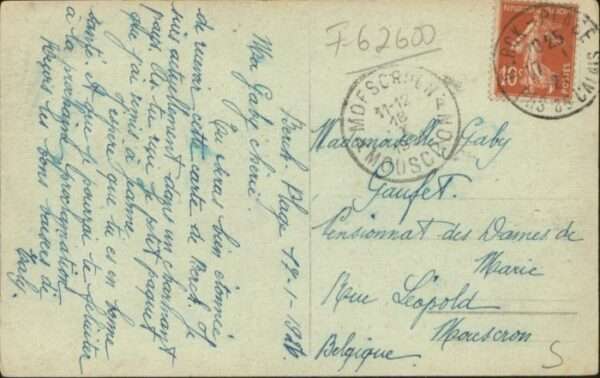 Berck-Plage 17-1-1916
Ma Gaby chérie.
Tu seras bien étonnée
de recevoir cette carte de Berck. Je
suis actuellement dans un charmant
pays. As-tu reçu le p'tit paquet
que j'ai remis à
J'espère que tu es en bonne
santé. Et que je pourrai te féliciter
à la prochaine proclamation
Reçois les bons baisers de
F-62600
10c
POSTES
PAS DE CALAIS
MOESCROEN
11-12
18
MOUSCRON
Mademoiselle Gaby
Gaufet.
Pensionnat des Dames de
Marie
Rue Léopold
Mouscron
Belgique.
S